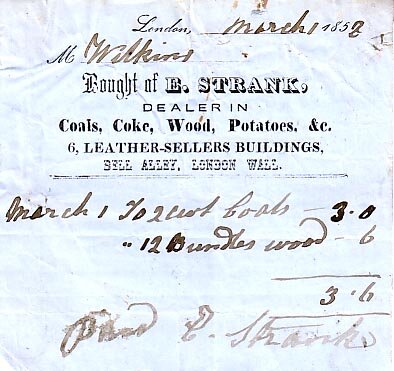 London, March 1 1852
M Wilkins
Bought of E. STRANK,
DEALER IN
Coals, Coke, Wood, Potatoes, &c.
6, LEATHER-SELLERS BUILDINGS,
BELL ALLEY, LONDON WALL.
March 1 To 2 cwt Coals - 3.0
" 12 Bundles wood - 6
3.6
Paid E. Strank